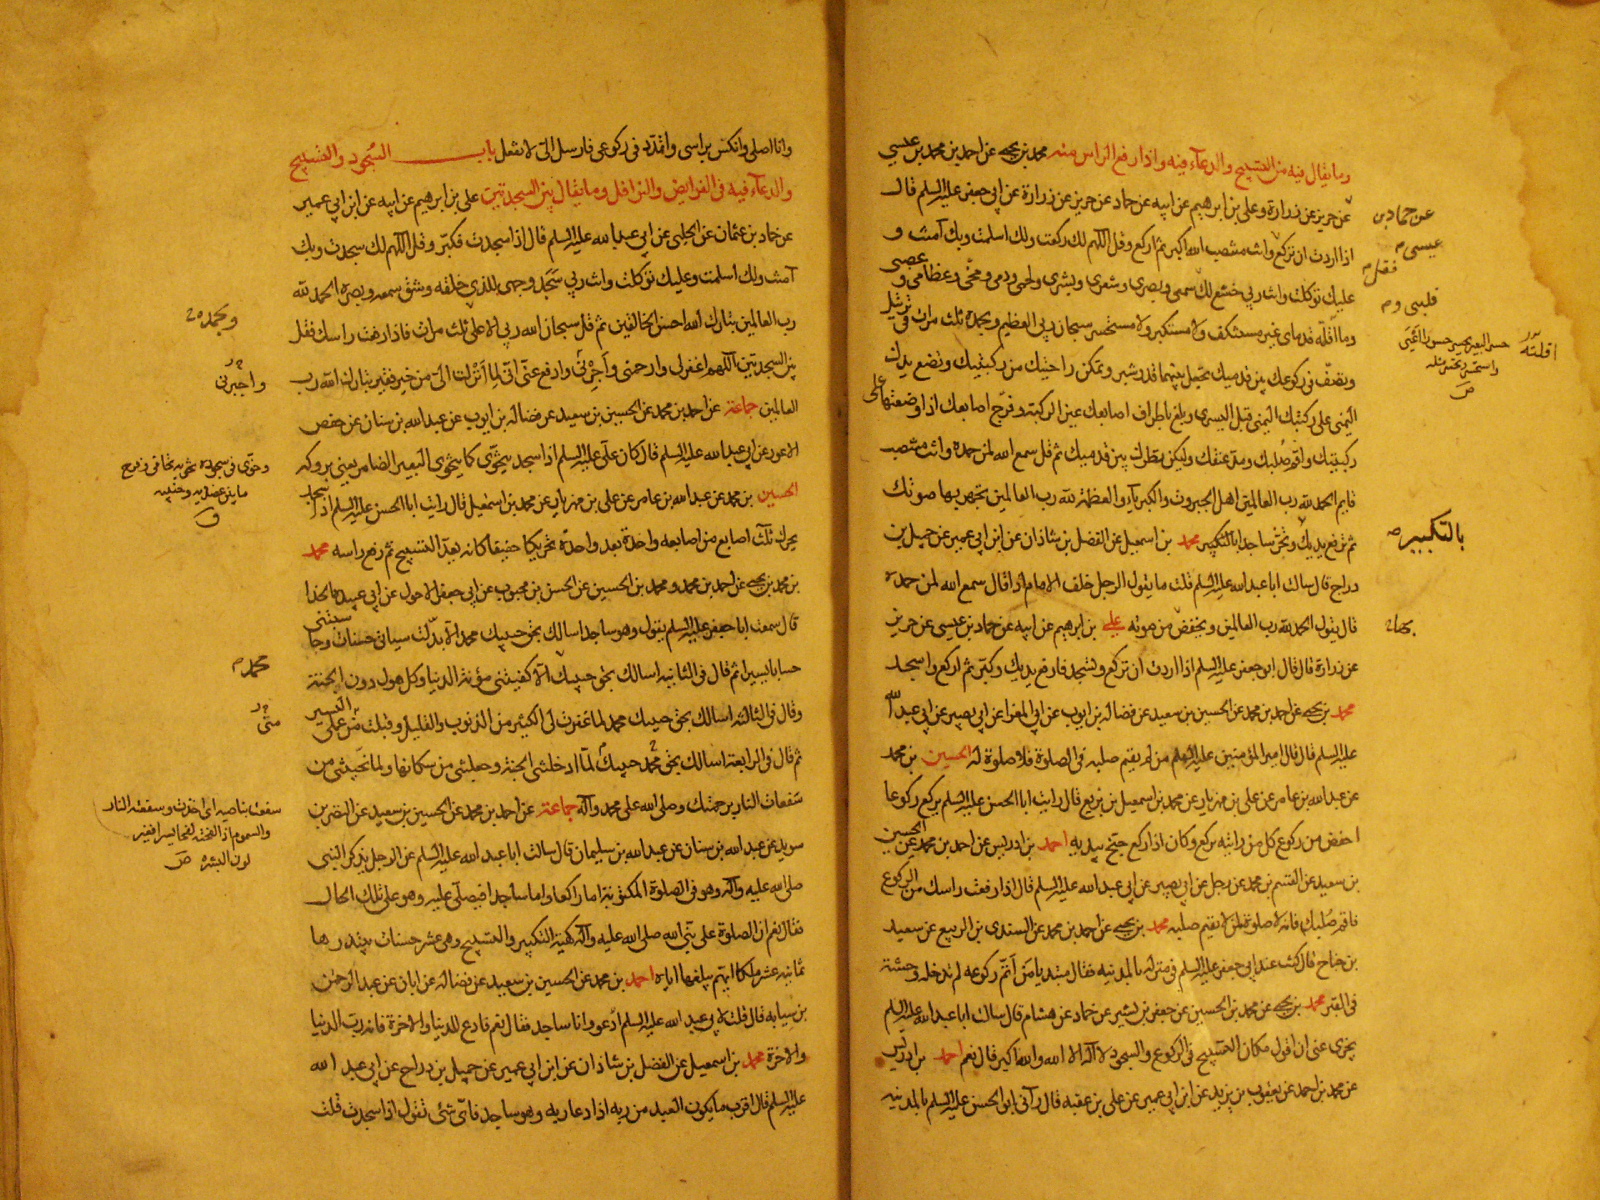 وما يقال فيه من التسبيح والدعاء فيه واذا رفع الراس منه محمد بن يحيى عن احمد بن محمد بن عيسى
عن حريز عن زرارة وعلى بن ابرهيم عن ابيه عن حماد عن حريز عن زرارة عن ابى جعفر عليه السلم قال
اذا اردت ان تركع وانت منتصب الله اكبر ثم اركع وقل اللهم لك ركعت ولك اسلمت وبك آمنت و
عليك توكلت وانت ربى خشع لك سمعى وبصرى وشعرى وبشرى ولحمى ودمى ومخى وعظامى وعصبى
وما اقلته قدماى غير مستنكف ولا مستكبر ولا مستحسر سبحان ربى العظيم وبحمده ثلث مرات فى ترتيل
وتصف فى ركوعك بين قدميك تجعل بينهما قدر شبر وتمكن راحتيك من ركبتيك وتضع يدك
اليمنى على ركبتك اليمنى قبل اليسرى وبلغ باطراف اصابعك عين الركبة وفرج اصابعك اذا وضعتها على
ركبتيك واقم صلبك ومد عنقك وليكن نظرك بين قدميك ثم قل سمع الله لمن حمده وانت منتصب
قايم الحمد لله رب العالمين اهل الجبروت والكبرياء والعظمة لله رب العالمين تجهر بها صوتك
ثم ترفع يديك وتخر ساجدا بالتكبير محمد بن اسمعيل عن الفضل بن شاذان عن ابن ابى عمير عن جميل بن
دراج قال سالت ابا عبد الله عليه السلم قلت ما يقول الرجل خلف الامام اذا قال سمع الله لمن حمده
قال يقول الحمد لله رب العالمين ويخفض من صوته على بن ابرهيم عن ابيه عن حماد بن عيسى عن حريز
عن زرارة قال قال ابو جعفر عليه السلم اذا اردت ان تركع وتسجد فارفع يديك وكبر ثم اركع واسجد
محمد بن يحيى عن احمد بن محمد عن الحسين بن سعيد عن فضالة بن ايوب عن ابى المغرا عن ابى بصير عن ابى عبد الله
عليه السلم قال قال امير المؤمنين عليه السلم من لم يقيم صلبه فى الصلوة فلا صلوة له الحسين بن محمد
عن عبد الله بن عامر عن على بن مهزيار عن محمد بن اسمعيل بن بزيع قال رايت ابا الحسن عليه السلم يركع ركوعا
اخفض من ركوع كل من رايته يركع وكان اذا ركع جنح بيديه احمد بن ادريس عن احمد بن محمد عن الحسين
بن سعيد عن القسم بن محمد عن رجل عن ابى بصير عن ابى عبد الله عليه السلم قال اذا رفعت راسك من الركوع
فاقم صلبك فانه لا صلوة لمن لا يقيم صلبه محمد بن يحيى عن احمد بن محمد عن السندى بن الربيع عن سعيد
بن جناح قال كنت عند ابى جعفر عليه السلم فى منزله بالمدينه فقال مبتديا من اتم ركوعه لم تدخله وحشة
فى القبر محمد بن يحيى عن محمد بن الحسين عن جعفر بن بشير عن حماد عن هشام قال سالت ابا عبد الله عليه السلم
يجزى عنى ان اقول مكان التسبيح فى الركوع والسجود لا اله الا الله والله اكبر قال نعم احمد بن ادريس
عن محمد بن احمد عن يعقوب بن يزيد عن ابن ابى عمير عن على بن عقبه قال رآنى ابو الحسن عليه السلم بالمدينه
عن حماد بن
عيسى م
فقل م
قلبى و م
اقلته
بالتكبير م
وانا اصلى وانكس براسى واتمدد فى ركوعى فارسل الى لا تفعل باب السجود والتسبيح
والدعاء فيه فى الفرايض والنوافل وما يقال بين السجدتين على بن ابرهيم عن ابيه عن ابن ابى عمير
عن حماد بن عثمان عن الحلبى عن ابى عبد الله عليه السلم قال اذا سجدت فكبر وقل اللهم لك سجدت وبك
آمنت ولك اسلمت وعليك توكلت وانت ربى سجد وجهى للذى خلقه وشق سمعه وبصره الحمد لله
رب العالمين تبارك الله احسن الخالقين ثم قل سبحان الله ربى الاعلى ثلث مرات فاذا رفعت راسك فقل
بين السجدتين اللهم اغفر لى وارحمنى وأجرنى وادفع عنى انى لما انزلت الى من خير فقير تبارك الله رب
العالمين جماعة عن احمد بن محمد عن الحسين بن سعيد عن فضالة بن ايوب عن عبد الله بن سنان عن حفص
الاعور عن ابى عبد الله عليه السلم قال كان على عليه السلم اذا سجد يتخوى كما يتخوى البعير الضامر يعنى بروكه
الحسين بن محمد عن عبد الله بن عامر عن على بن مهزيار عن محمد بن اسمعيل قال رايت ابا الحسن عليه السلم اذا سجد
يحرك ثلث اصابع من اصابعه واحدة بعد واحدة تحريكا خفيفا كانه يعد التسبيح ثم رفع راسه محمد
بن محمد بن يحيى عن احمد بن محمد ومحمد بن الحسين عن الحسن بن محبوب عن ابى جعفر الاحول عن ابى عبيدة الحذا
قال سمعت ابا جعفر عليه السلم يقول وهو ساجد اسالك بحق حبيبك محمد الا بدلت سياتى حسنات وحاسبتنى
حسابا يسيرا ثم قال فى الثانية اسالك بحق حبيبك الا كفيتنى مؤنة الدنيا وكل هول دون الجنة
وقال فى الثالثة اسالك بحق حبيبك محمد لما غفرت لى الكثير من الذنوب والقليل وقبلت من على اليسير
ثم قال فى الرابعة اسالك بحق محمد حبيبك لما ادخلتنى الجنة وجعلتنى من سكانها ولما نجيتنى من
سفعات النار برحمتك وصلى الله على محمد وآله جماعة عن احمد بن محمد عن الحسين بن سعيد عن النضر بن
سويد عن عبد الله بن سنان عن عبد الله بن سليمان قال سالت ابا عبد الله عليه السلم عن الرجل يذكر النبى
صلى الله عليه وآله وهو فى الصلوة المكتوبة اما راكعا واما ساجدا فيصلى عليه وهو على تلك الحال
فقال نعم ان الصلوة على نبى الله صلى الله عليه وآله كهيئة التكبير والتسبيح وهى عشر حسنات يبتدرها
ثمانيه عشر ملكا ايهم يبلغها اياه احمد بن محمد عن الحسين بن سعيد عن فضالة عن ابان عن عبد الرحمن
بن سيابه قال قلت لابى عبد الله عليه السلم ادعو وانا ساجد فقال نعم فادع للدنيا والاخرة فانه رب الدنيا
والاخرة محمد بن اسمعيل عن الفضل بن شاذان عن ابن ابى عمير عن جميل بن دراج عن ابى عبد الله
عليه السلم قال اقرب ما يكون العبد من ربه اذا دعا ربه وهو ساجد فاى شئ تقول اذا سجدت قلت
وبحمده
واجبرنى
وخوى فى سجوده تخوية تجافى وفرج
ما بين عضديه وجنبيه
ق
محمد م
منى
سفعت بناصيه اى اخذت وسفعته النار
والسموم اذا لفحته لفحا يسيرا فغير
لون البشرة ص